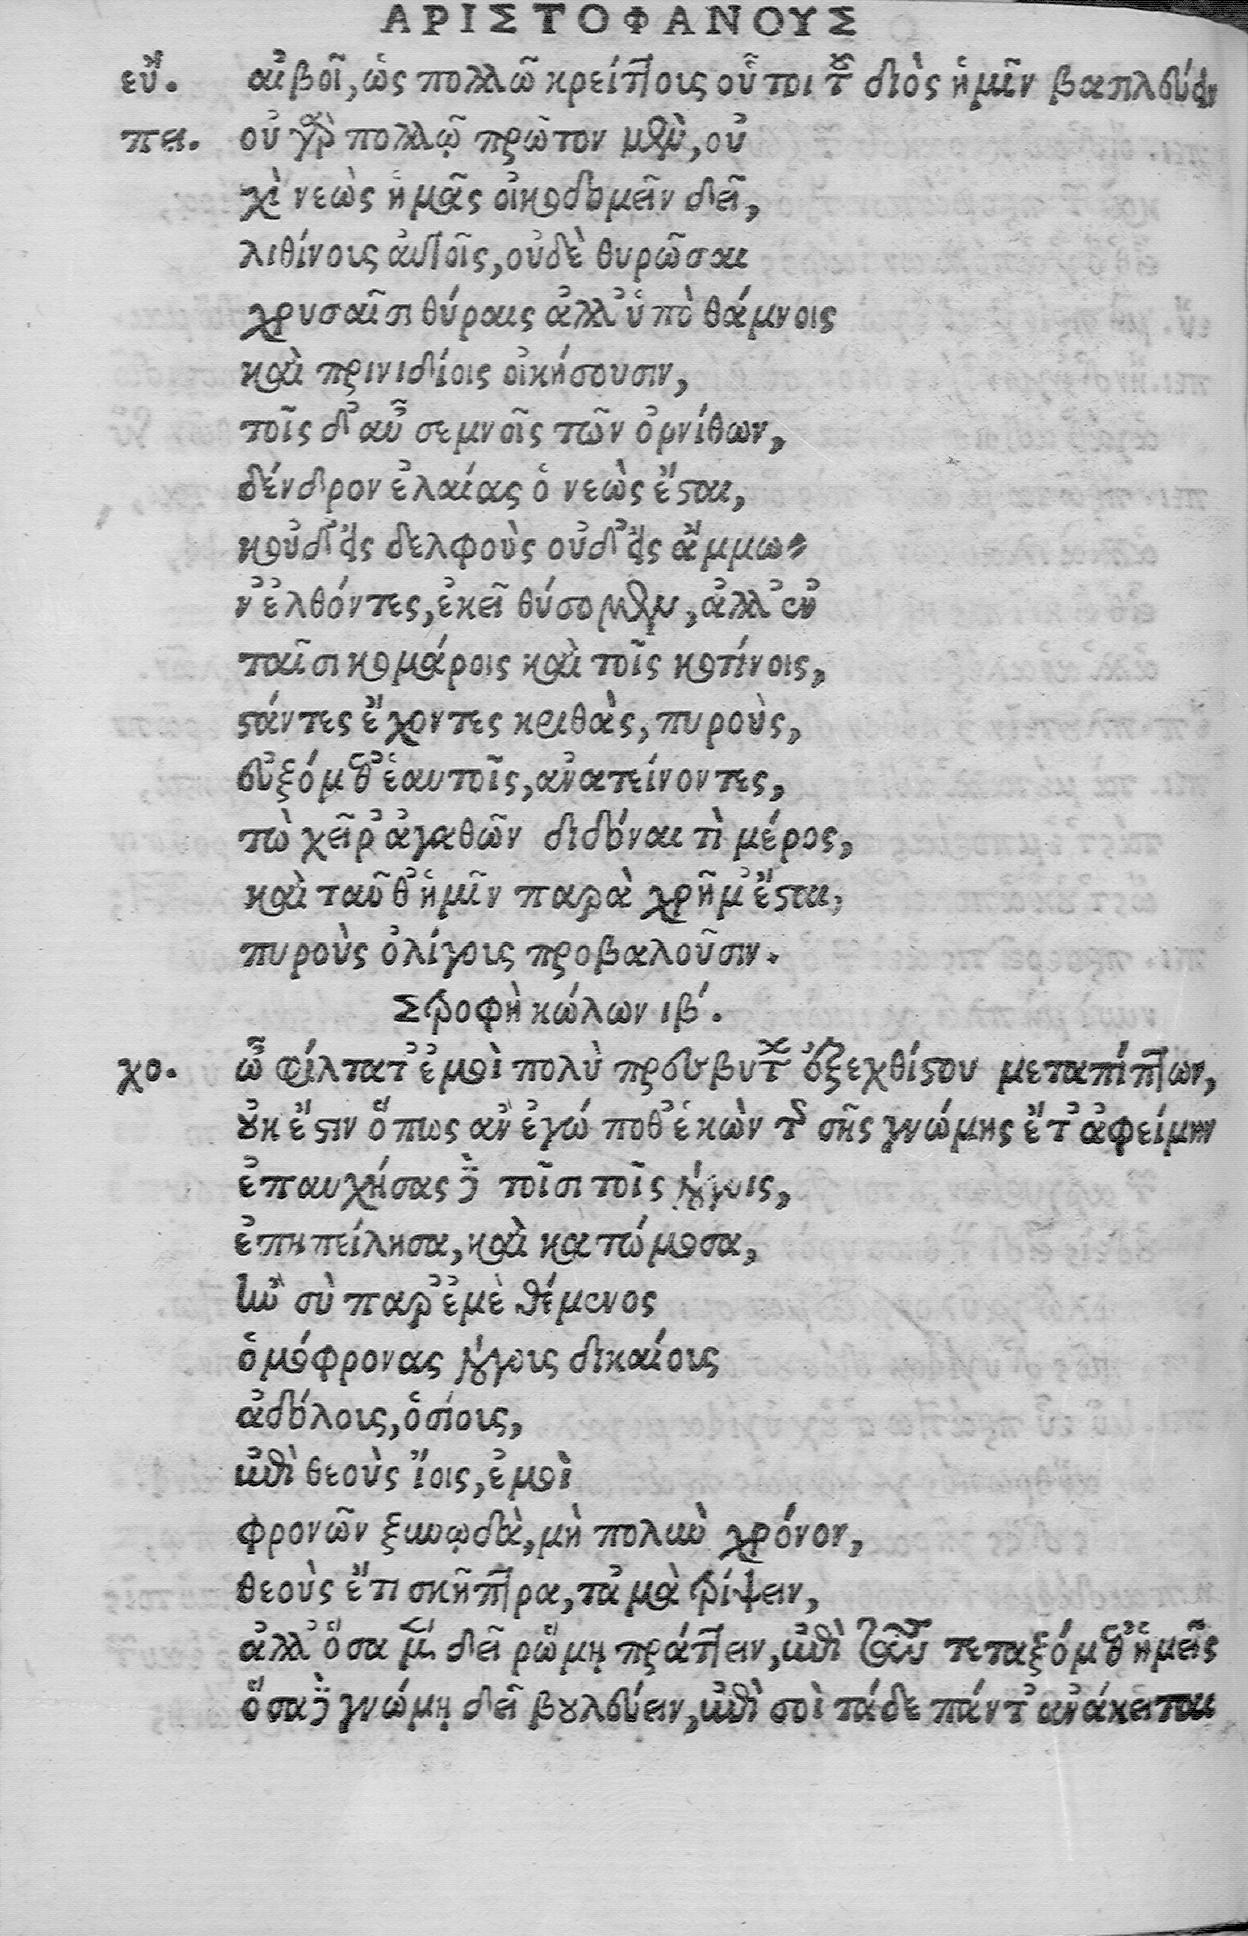 ΑΡΙΣΤΟΦΑΝΟΥΣ
εὔ. αἰβοῖ, ὡς πολλῶ κρείττους οὗτοι τοῦ διὸς ἡμῖν βασιλεύειν
πει. οὐ γὰρ πολλῷ πρῶτον μὲν, οὐ
χὶ νεὼς ἡμᾶς οἰκοδομεῖν δεῖ,
λιθίνους αὐτοῖς, οὐδὲ θυρῶσαι
χρυσαῖσι θύραις ἀλλ' ὑπὸ θάμνοις
καὶ πρινιδίοις οἰκήσουσιν,
τοῖς δ' αὖ σεμνοῖς τῶν ὀρνίθων,
δένδρον ἐλαίας ὁ νεὼς ἔσται,
κοὐδ' εἰς δελφοὺς οὐδ' εἰς ἄμμω-
ν' ἐλθόντες, ἐκεῖ θύσομεν, ἀλλ' ἐν
ταῖσι κομάροις καὶ τοῖς κοτίνοις,
στάντες ἔχοντες κριθὰς, πυροὺς,
εὐξόμεθ' ἑαυτοῖς, ἀνατείνοντες,
τὼ χεῖρ' ἀγαθῶν διδόναι τὶ μέρος,
καὶ ταῦθ' ἡμῖν παρὰ χρῆμ' ἔσται,
πυροὺς ὀλίγοις προβαλοῦσιν.
Στροφὴ κώλων ιβ'.
χο. ὦ φίλτατ' ἐμοὶ πολὺ πρεσβυτῶν ἐξ ἐχθίστου μεταπίπτων,
οὐκ ἔστιν ὅπως ἂν ἐγώ ποθ' ἑκὼν τῆς σῆς γνώμης ἔτ' ἀφείμην
ἐπαυχήσας δὲ τοῖσι τοῖς λόγοις,
ἐπηπείλησα, καὶ κατώμοσα,
ἢν σὺ παρ' ἐμὲ θέμενος
ὁμόφρονας λόγους δικαίους
ἀδόλους, ὁσίους,
ἐπὶ θεοὺς ἴοις, ἐμοὶ
φρονῶν ξυνῳδὰ, μὴ πολὺν χρόνον,
θεοὺς ἔτι σκῆπτρα, τἀμὰ τρίψειν,
ἀλλ' ὅσα μὲν δεῖ ῥώμῃ πράττειν, ἐπὶ ταῦτα τεταξόμεθ' ἡμεῖς
ὅσα δὲ γνώμῃ δεῖ βουλεύειν, ἐπὶ σοὶ τάδε πάντ' ἀνάκειται